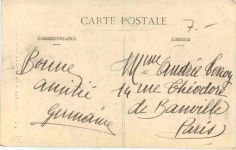 CARTE POSTALE
7.-
CORRESPONDANCE
ADRESSE
Bonne
amitié
Germaine
Mme André
14 rue Théodore
de Banville
Paris